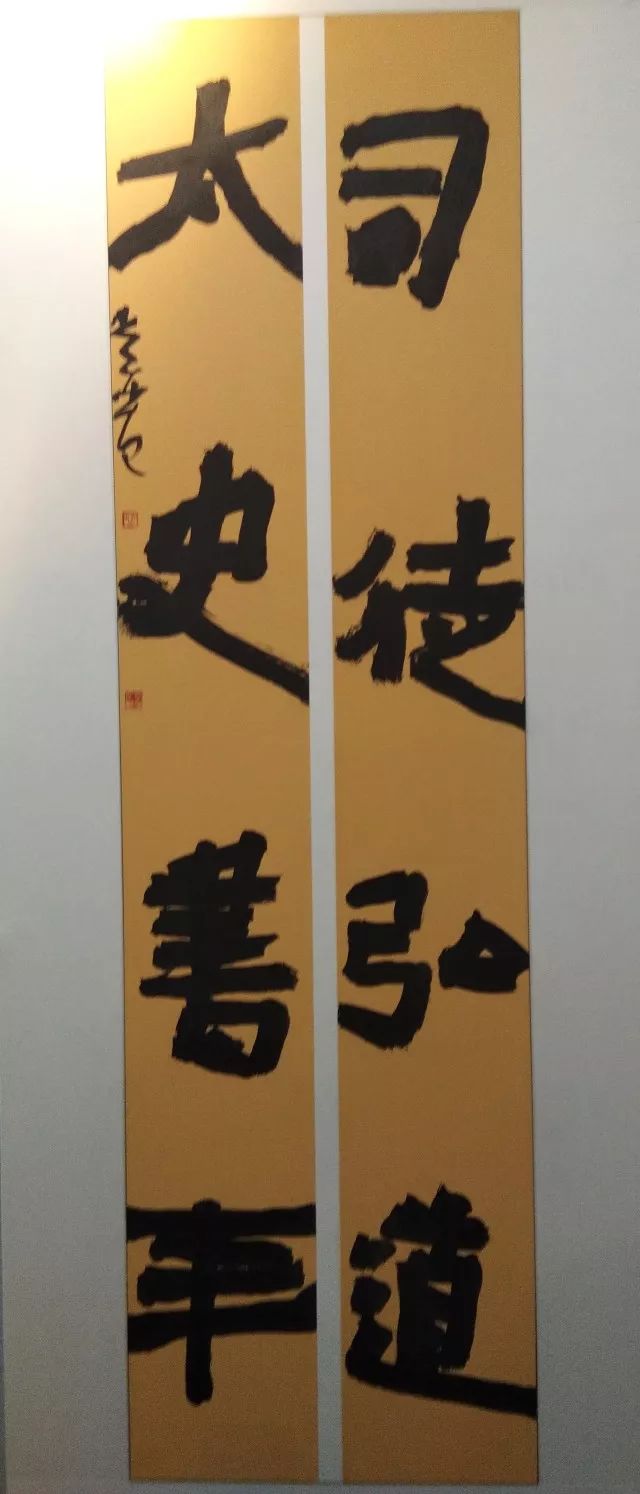 司徒弘道
太史書年